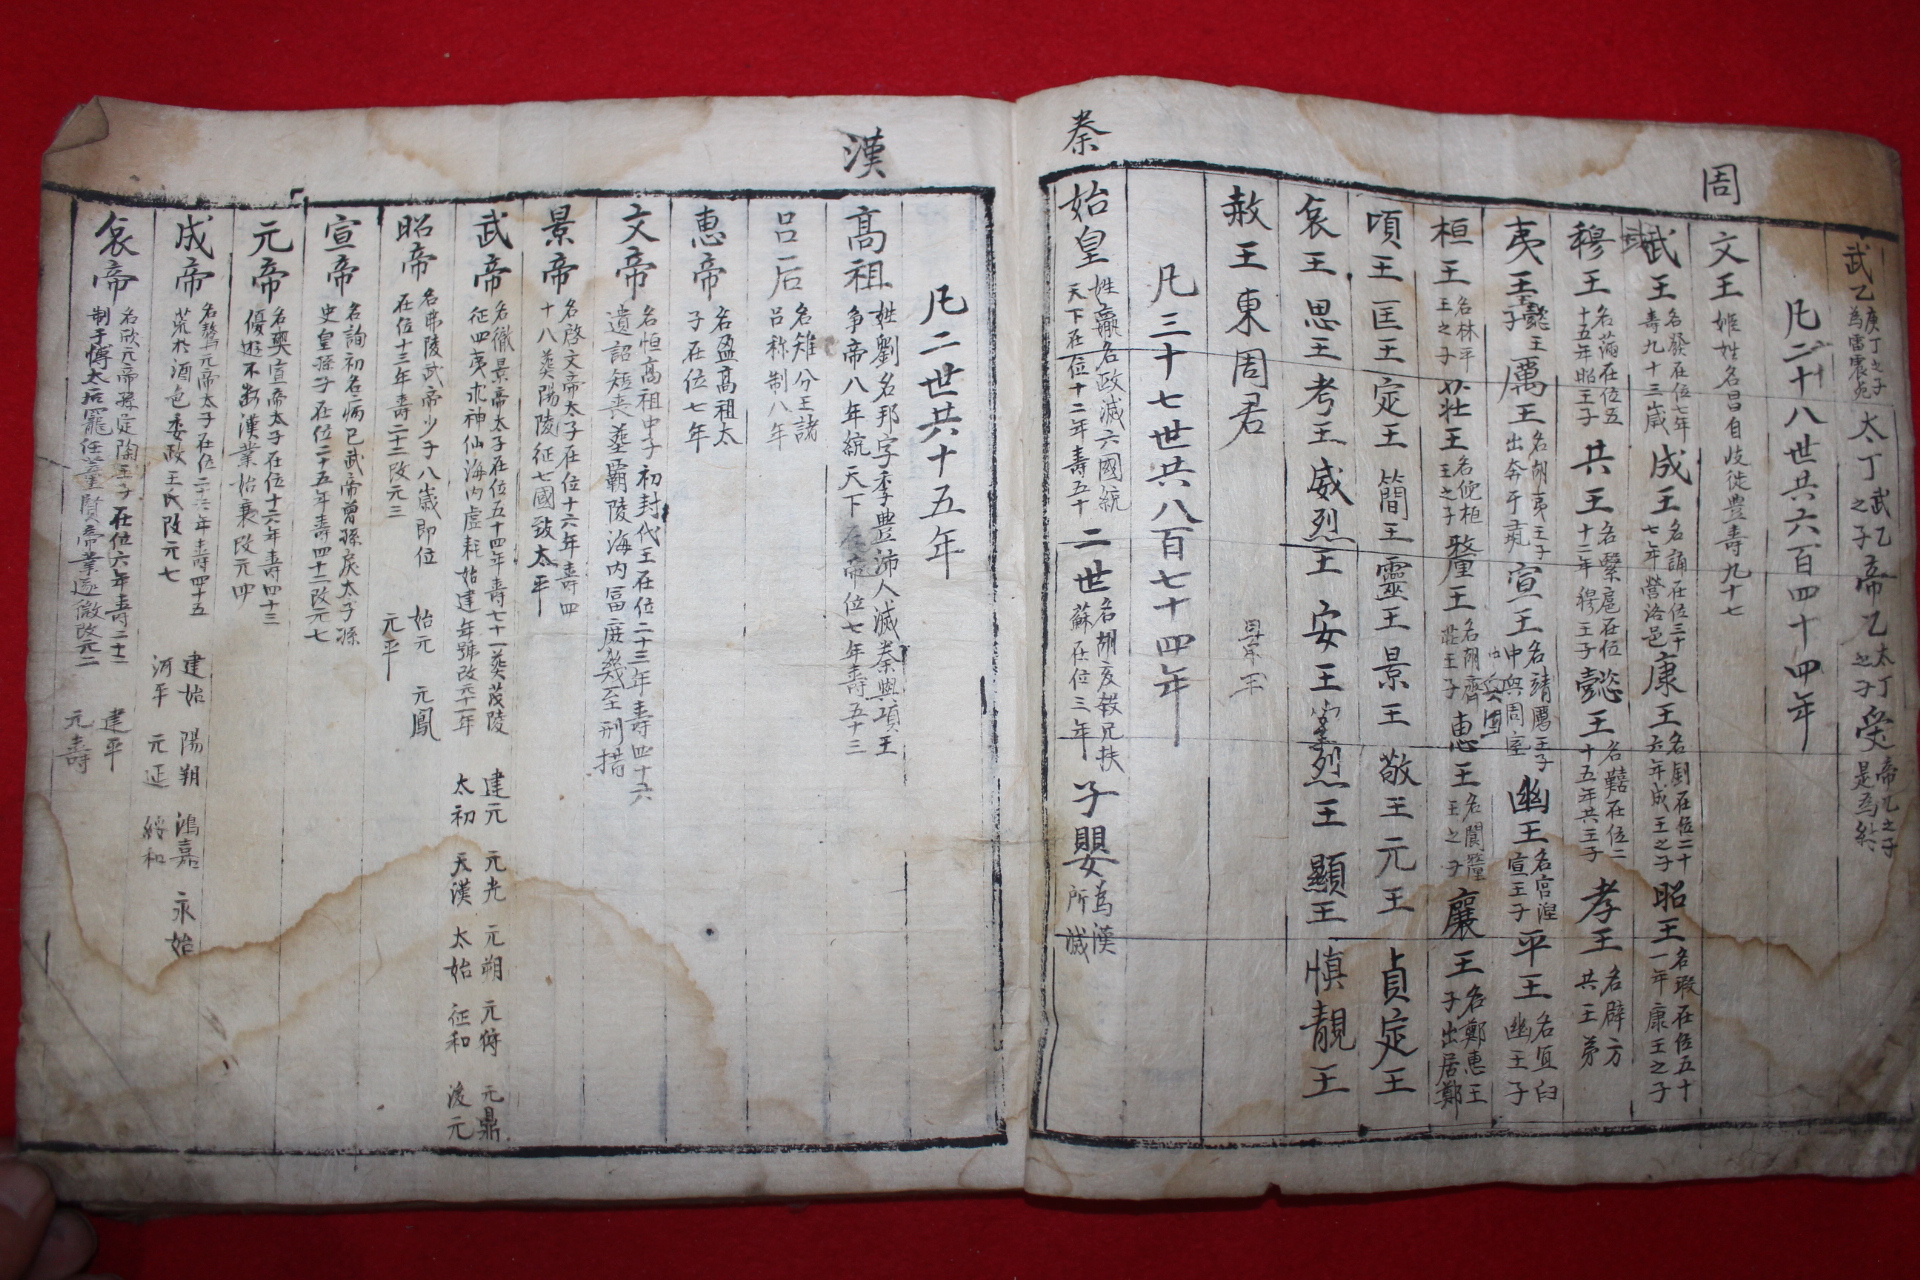 周
武乙庚丁之子為雷震死太丁武乙之子帝乙太丁之子受帝乙之子是為紂
凡二十八世共六百四十四年
文王姬姓名昌自岐徙豊壽九十七
武王名發在位七年壽九十三歲成王名誦在位三十七年營洛邑康王名釗在位二十六年成王之子昭王名瑕在位五十一年康王之子
穆王名滿在位五十五年昭王子共王名繄扈在位十二年穆王子懿王名囏在位二十五年共王子孝王名辟方共王弟
夷王懿王子厲王名胡夷王子出奔于彘宣王名靖厲王子中興周室幽王名宮湼宣王子平王名宜臼幽王子
桓王名林平王之子莊王名佗桓王之子釐王名胡齊莊王子惠王名閬釐王之子襄王名鄭惠王子出居鄭
頃王匡王定王簡王靈王景王敬王元王貞定王
哀王思王考王威烈王安王烈王顯王慎靚王
赧王東周君
凡三十七世共八百七十四年
秦
始皇姓嬴名政滅六國統天下在位十二年壽五十二世名胡亥殺兄扶蘇在位三年子嬰為漢所滅
凡二世共十五年
漢
高祖姓劉名邦字季豊沛人滅秦與項王爭帝八年統天下在帝位七年壽五十三
呂后名雉分王諸呂称制八年
惠帝名盈高祖太子在位七年
文帝名恒高祖中子初封代王在位二十三年壽四十六遺詔短喪葬霸陵海内富庶幾至刑措
景帝名啓文帝太子在位十六年壽四十八葬陽陵征七國致太平
武帝名徹景帝太子在位五十四年壽七十一葬茂陵征四夷求神仙海内虛耗始建年號改元十一年 建元 元光 元朔 元狩 元鼎 太初 天漢 太始 征和 後元
昭帝名弗陵武帝少子八歲即位在位十三年壽二十二改元三 始元 元鳳 元平
宣帝名詢初名病已武帝曾孫戾太子孫史皇孫子在位二十五年壽四十二改元七
元帝名奭宣帝太子在位十六年壽四十三優遊不斷漢業始衰改元四
成帝名驁元帝太子在位二十六年壽四十五荒於酒色委政王氏改元七 建始 陽朔 鴻嘉 永始 河平 元延 綏和
哀帝名欣元帝孫定陶王子在位六年壽二十二制于傅太后寵任董賢帝業遂微改元二 建平 元壽